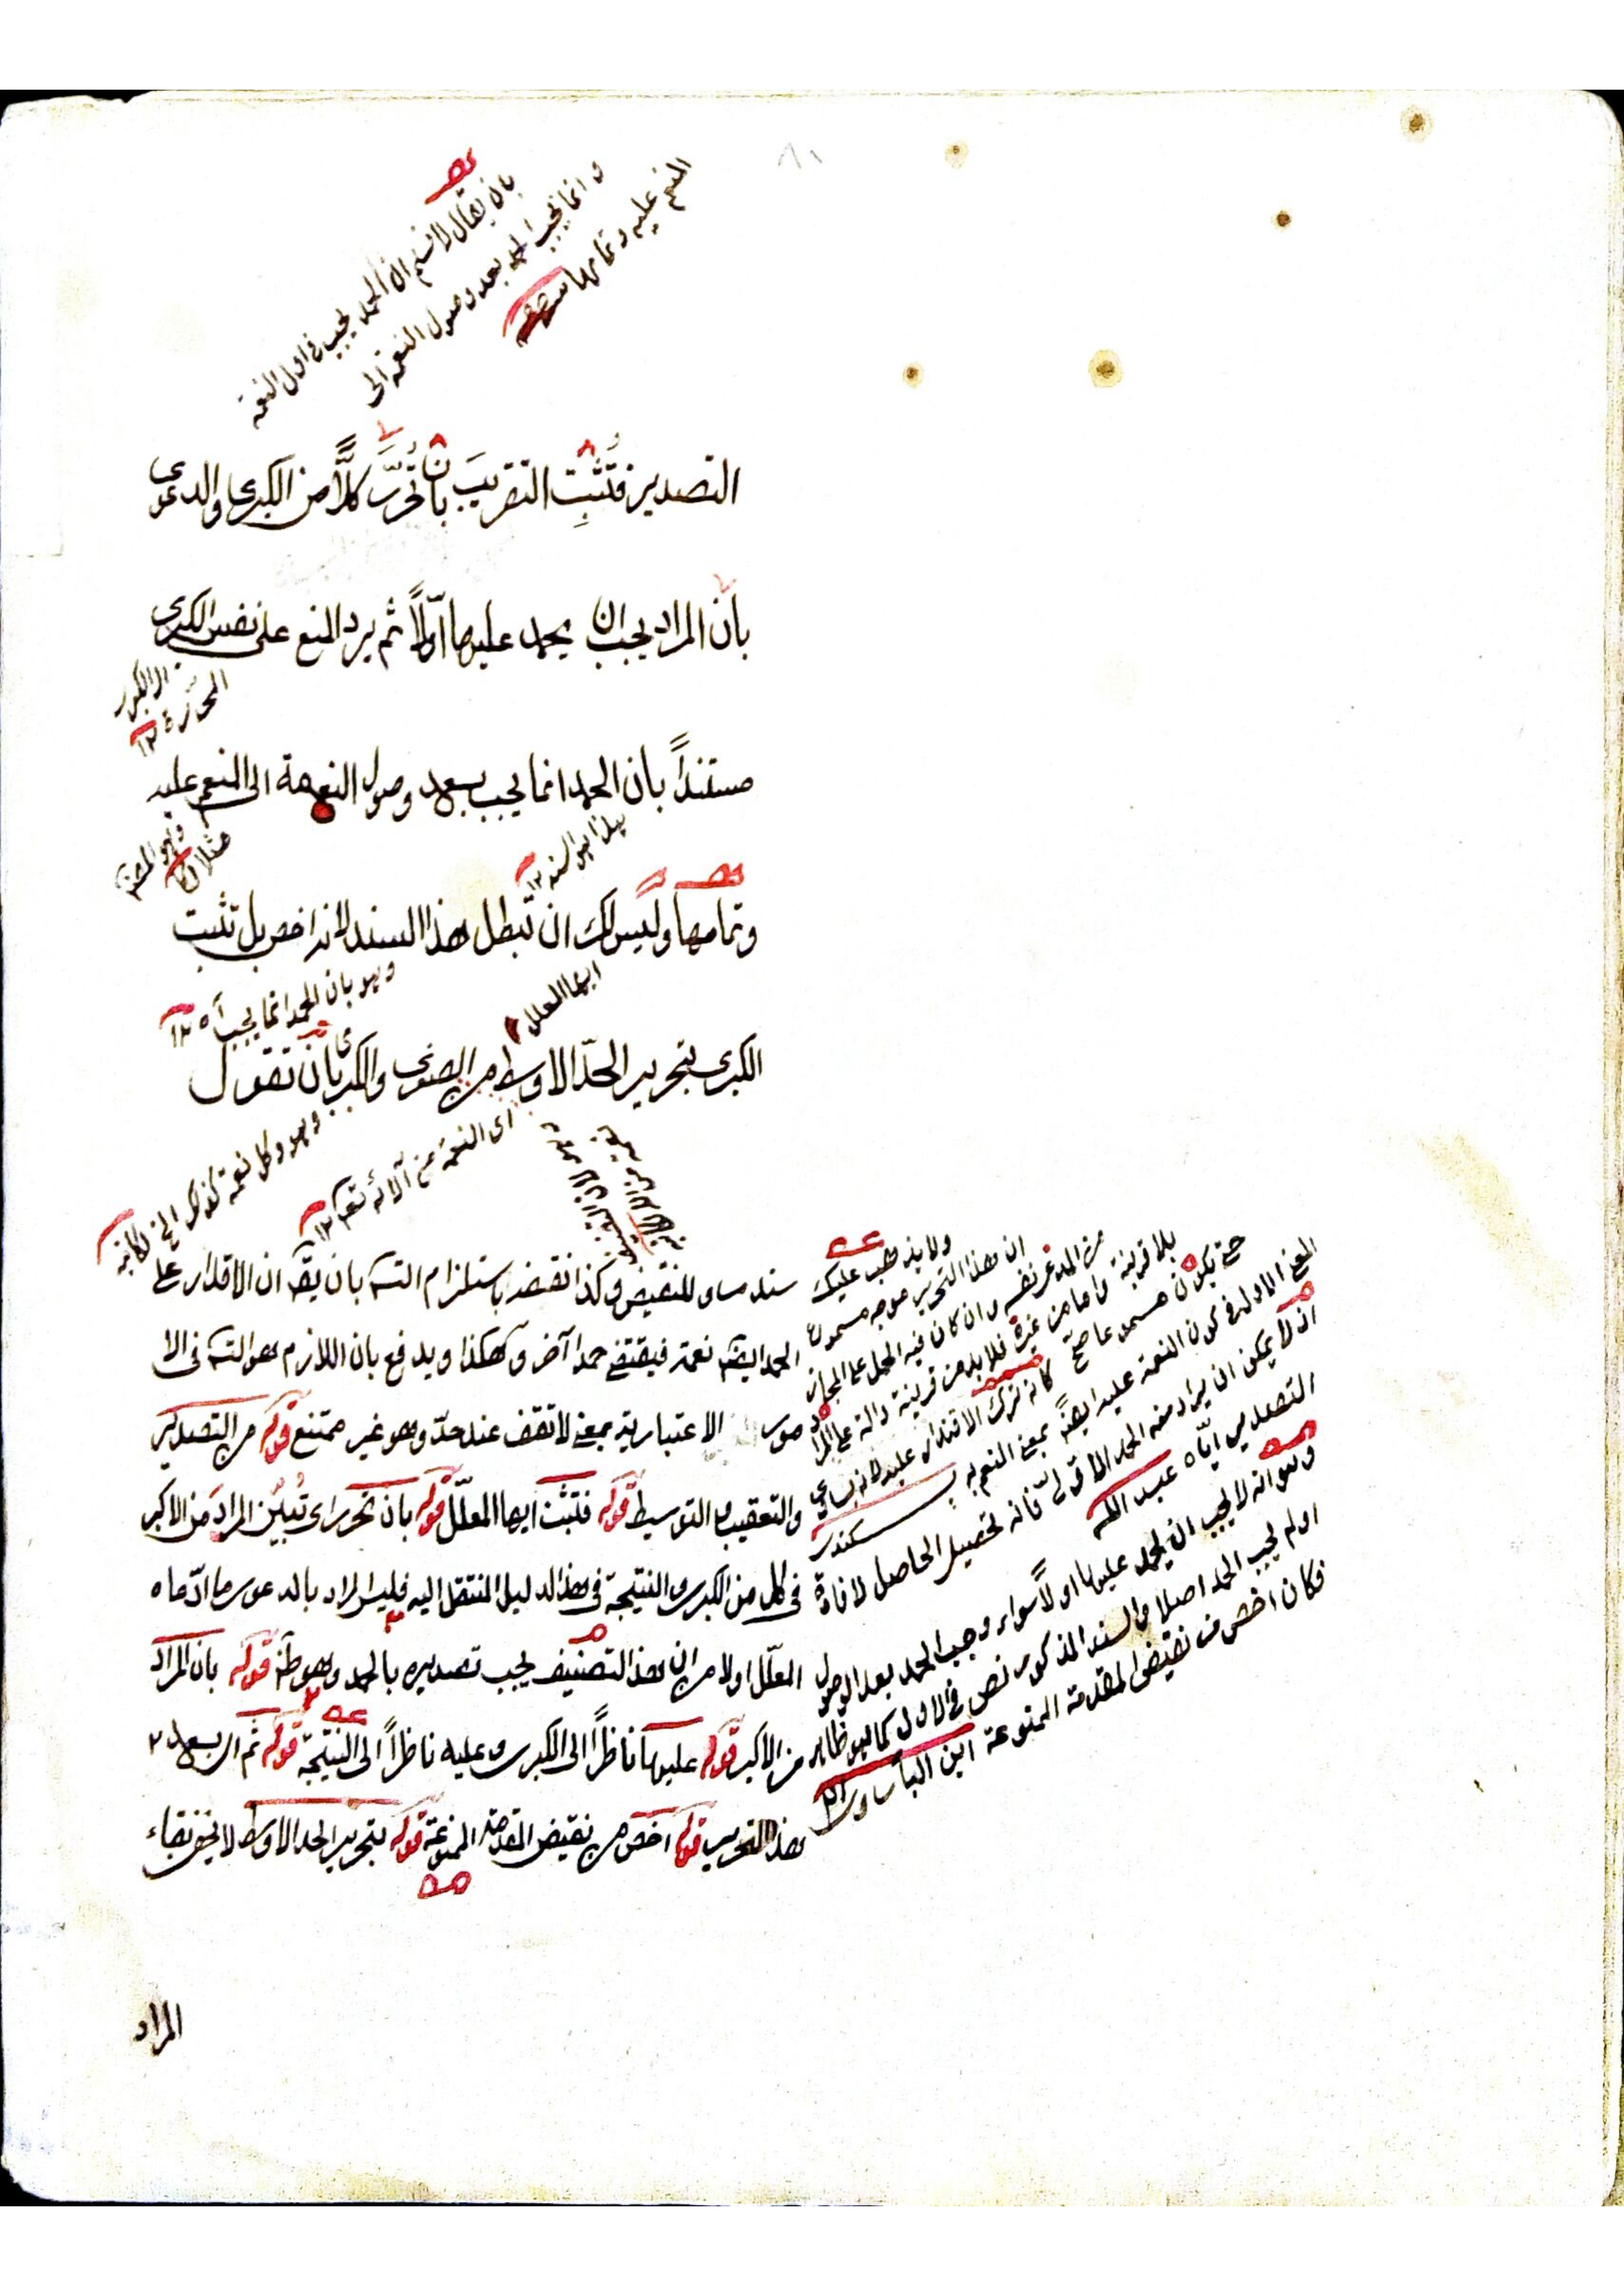 بان يقال لا نسلم ان الحمد يجب فى اول النعمة
وانما يجب الحمد بعد وصول النعمة الى
المنعم عليه وتمامها
التصدير فتُثبِت التقريبَ بان تُحرّر كلاًّ من الكبرى والدعوى
بان المراد يجب ان يحمد عليها اوّلاً ثم يرد المنع على نفس الكبرى
المحررة ١٢
مستنداً بان الحمد انما يجب بعد وصول النعمة الى المنعم عليه
مثلا
هذا هو السند ١٢
وتمامها وليس لك ان تبطل هذا السند لانه اخص بل تثبت
ايها المعلل
وهو بان الحمد انما يجب آه ١٢
الكبرى بتحرير الحدّ الاوسط من الصغرى والكبرى بان تقول
اى النعمة من آلائه تعـ ١٢
وهو وكل نعمة كذلك الخ
سند مساو للنقيض وكذا نقضه باستلزام التسـ بان يقـ ان الاقدار على
الحمد ايضـ نعمة فيقتضى حمدا آخر وهكذا ويدفع بان اللازم هو التسـ فى الا
صور الاعتبارية بمعنى لا تقف عند حدّ وهو غير ممتنع قوله من التصدير
والتعقيب او التوسيط قوله فتثبت ايها المعلّل قوله بان تحرر اى تُبيّن المراد من الاكبر
فى كل من الكبرى والنتيجة فى هذا الدليل المنتقل اليه فليس المراد بالدعوى ما ادّعاه
المعلّل اولا من ان هذا التصنيف يجب تصديره بالحمد وهو ظـ قوله بان المراد
من الاكبر قوله عليها ناظراً الى الكبرى وعليه ناظراً الى النتيجة قوله ثم اى بعد
هذا التحرير قوله اخص من نقيض المقدمة الممنوعة قوله بتحرير الحد الاوسط لا يخفى بقاء
ولا يذهب عليك
ان هذا التحرير موجه مسموع
من المدعى نفسه وان كان فيه الحمل على المجاز
بلا قرينة واما من غيره فلا بد من قرينة دالة على المراد
حتى يكون مسموعا صح كانه ترك الاقتدار عليه لانه يساوى
المعنى الاول فى كون النعمة عليه ايضـ بمعنى المنعم به سكندر
اذ لا يمكن ان يراد منه الحمد الاوّلى فانه تحصيل الحاصل لافادة
التصدير اياه عبد اللـه
وهو انه لا يجب ان يحمد عليها اولاً سواء وجب الحمد بعد الوصول
او لم يجب الحمد اصلا والسند المذكور نص فى الاول كما هو ظاهر
فكان اخص من نقيض المقدمة الممنوعة ابن
المراد